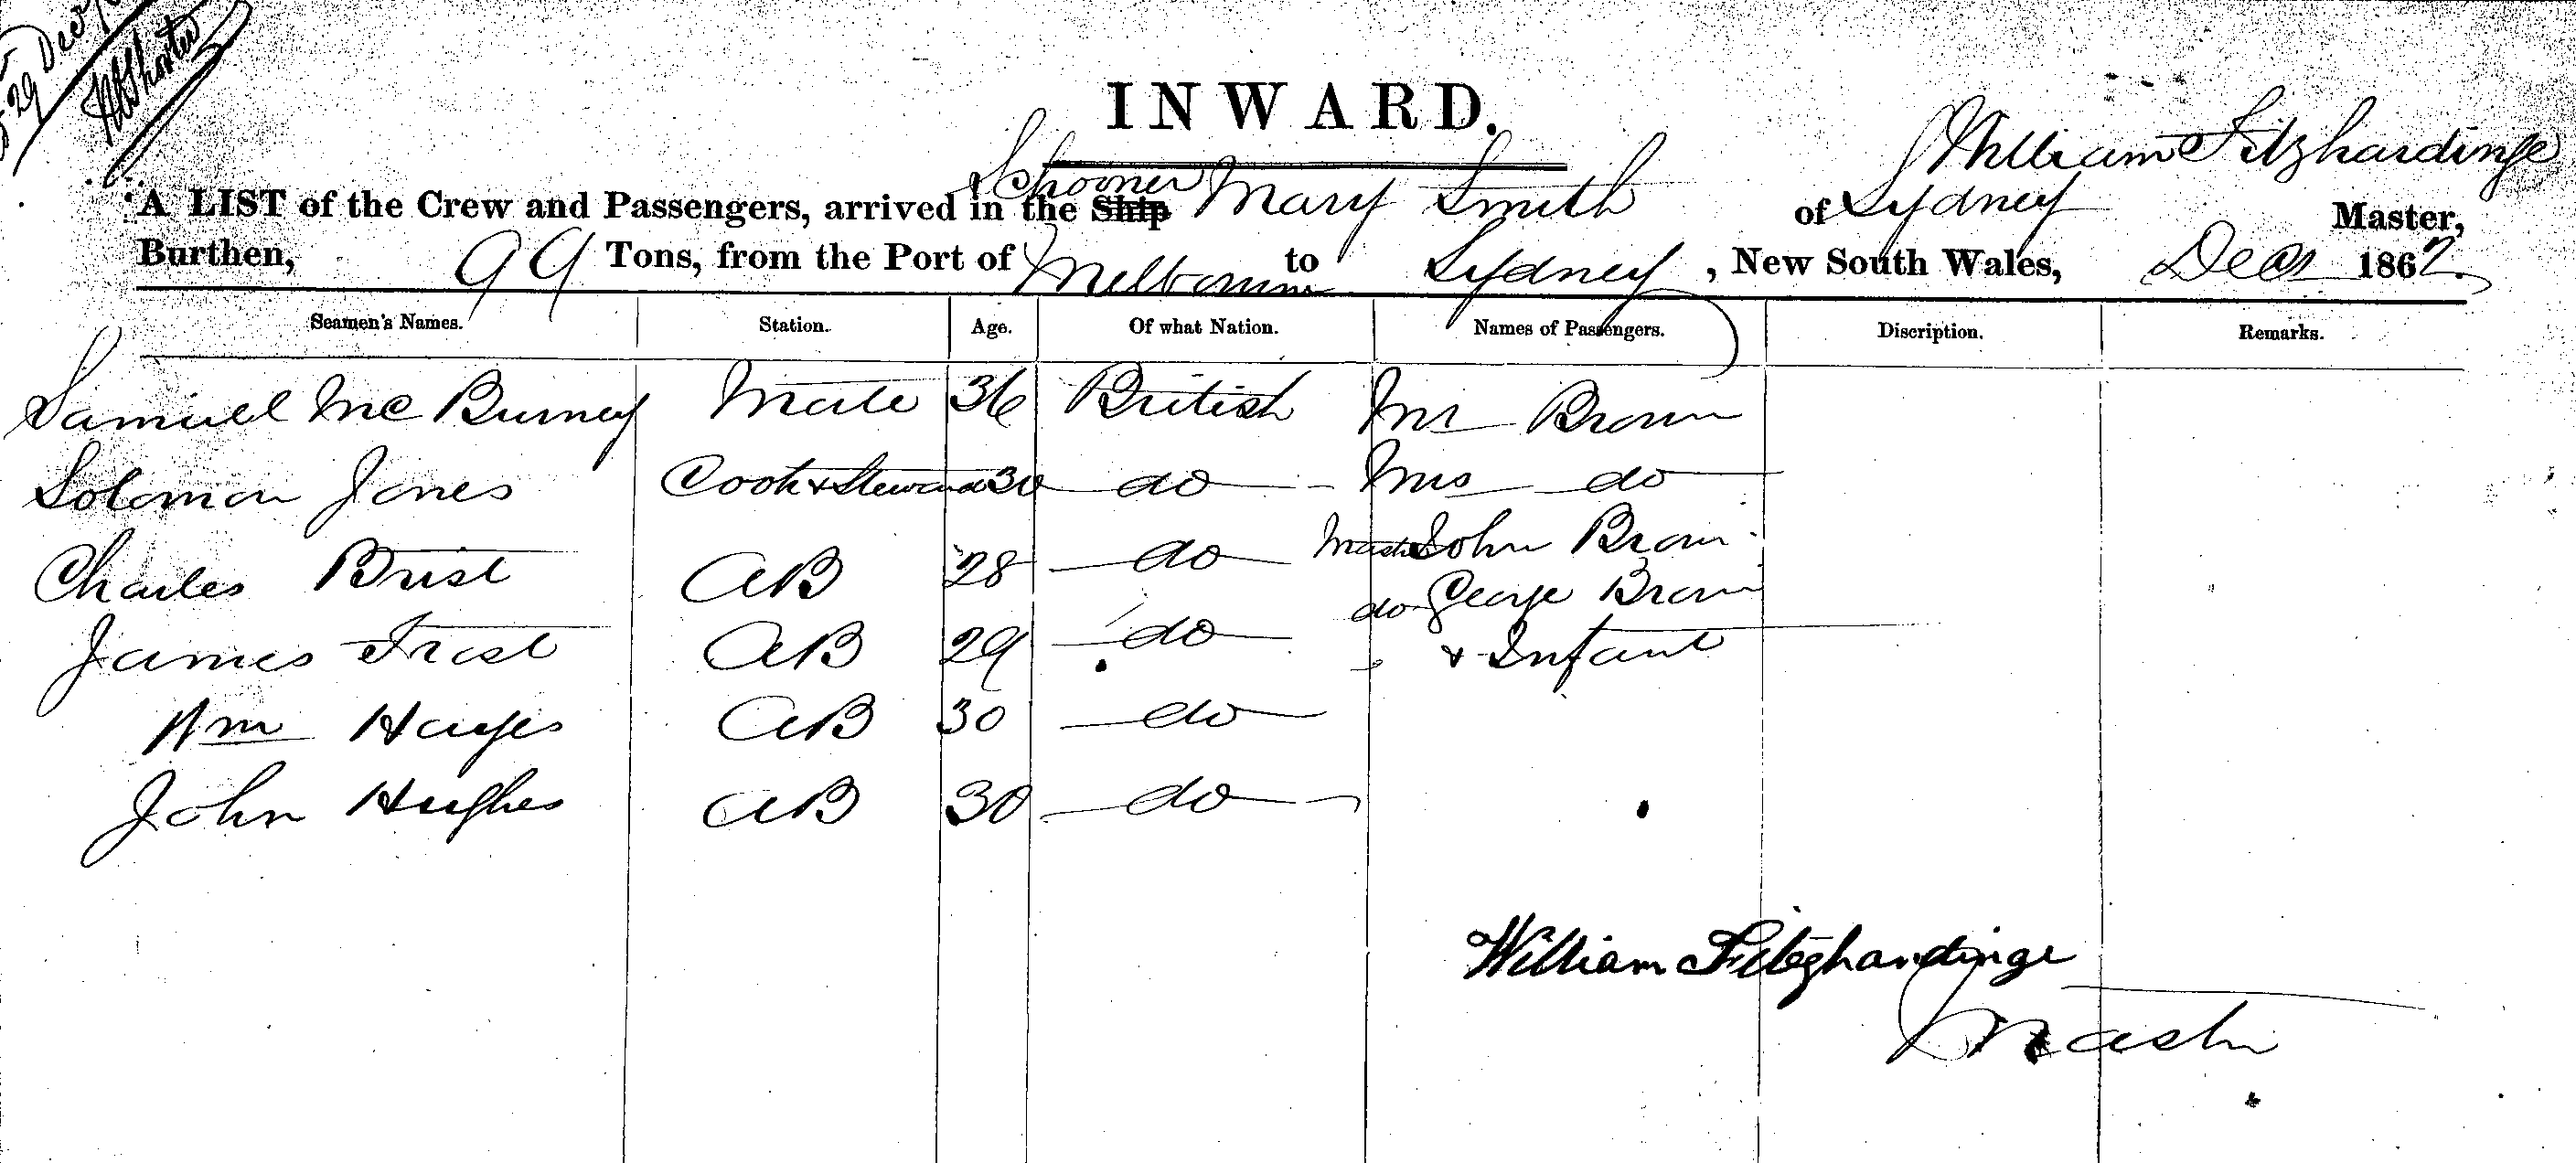 29 Decr
INWARD.
William Fitzhardinge
Schooner
A LIST of the Crew and Passengers, arrived in the Ship Mary Smith of Sydney Master,
Burthen, 99 Tons, from the Port of Melbourne to Sydney, New South Wales, Decr 1862.
Seamen's Names. Station. Age. Of what Nation. Names of Passengers. Discription. Remarks.
Samuel McBurney Mate 36 British Mr Brown
Solomon Jones Cook & Steward 30 do Mrs do
Charles Brist AB 28 do Mastr John Brown
do George Brown
James Frost AB 29 do & Infant
Wm Hayes AB 30 do
John Hughes AB 30 do
William Fitzhardinge
Mastr